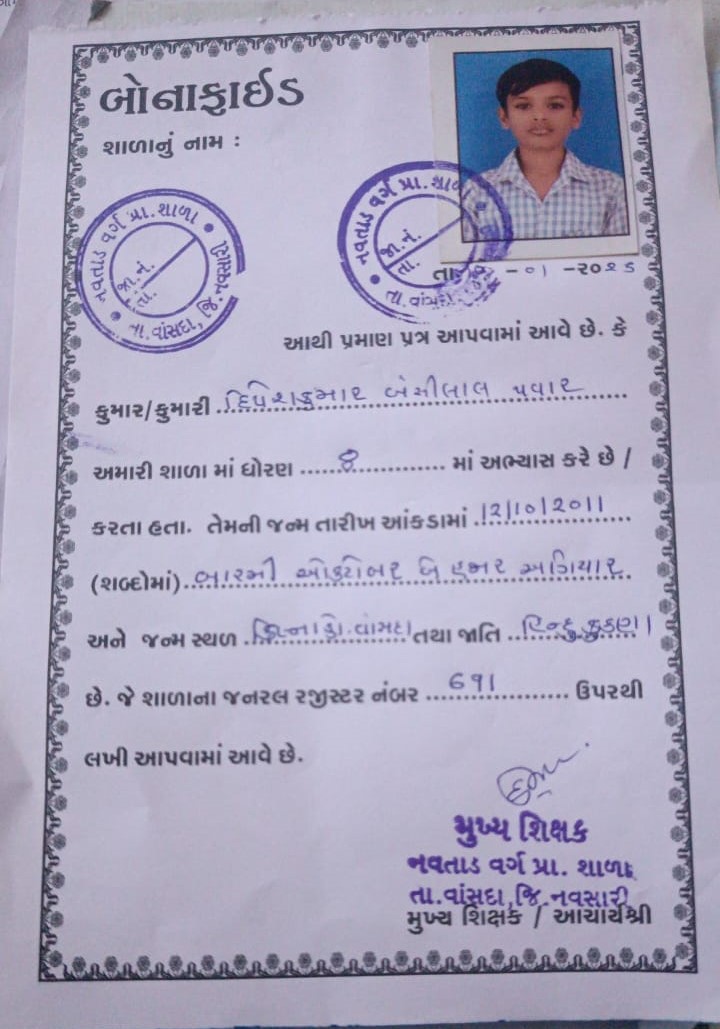 બોનાફાઈડ
શાળાનું નામ :
નવતાડ વર્ગ પ્રા. શાળા
તા. વાંસદા, જિ. નવસારી
જા. નં.
તા.
નવતાડ વર્ગ પ્રા. શાળા
તા. વાંસદા,
જા. નં.
તા.
તા. -૦૧ -૨૦
આથી પ્રમાણ પત્ર આપવામાં આવે છે. કે
કુમાર/કુમારી દિપેશકુમાર બંસીલાલ પવાર
અમારી શાળા માં ધોરણ ૪ માં અભ્યાસ કરે છે /
કરતા હતા. તેમની જન્મ તારીખ આંકડામાં 12/10/2011
(શબ્દોમાં) બારમી ઓક્ટોબર બે હજાર અગિયાર
અને જન્મ સ્થળ વાંસદા તથા જાતિ હિન્દુ કુકણા
છે. જે શાળાના જનરલ રજીસ્ટર નંબર ૬૧૧ ઉપરથી
લખી આપવામાં આવે છે.
મુખ્ય શિક્ષક
નવતાડ વર્ગ પ્રા. શાળા
તા.વાંસદા,જિ.નવસારી
મુખ્ય શિક્ષક / આચાર્યશ્રી